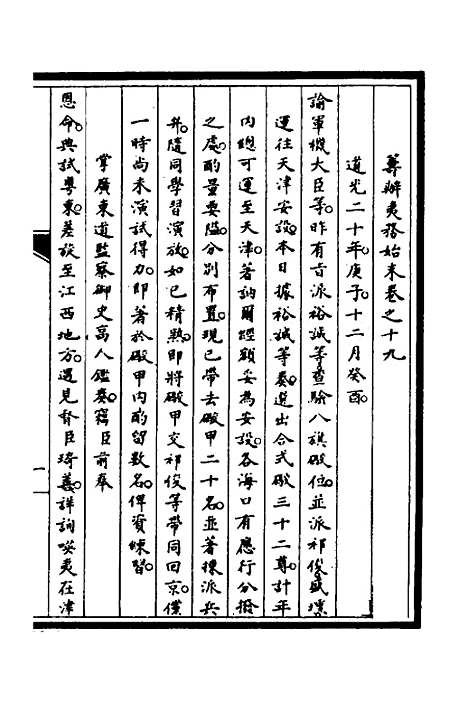 籌辦夷務始末卷之十九
道光二十年庚子。十二月癸酉。
諭軍機大臣等。昨有旨派裕誠等查驗八旗礮位。並派祁俊盛壎
運往天津安設。本日據裕誠等奏。選出合式礮三十二尊。計年
內總可運至天津。著訥爾經額妥為安設。各海口有應行分撥
之處。酌量要隘。分別布置。現已帶去礮甲二十名。並著揀派兵
弁。隨同學習演放。如已精熟。即將礮甲交祁俊等帶同回京。僅
一時尚未演試得力。即著於礮甲內酌留數名。俾資練習。
掌廣東道監察御史高人鑑奏。竊臣前奉
恩命。典試粵東。差旋至江西地方。遇見督臣琦善。詳詢𠸄夷在津
一